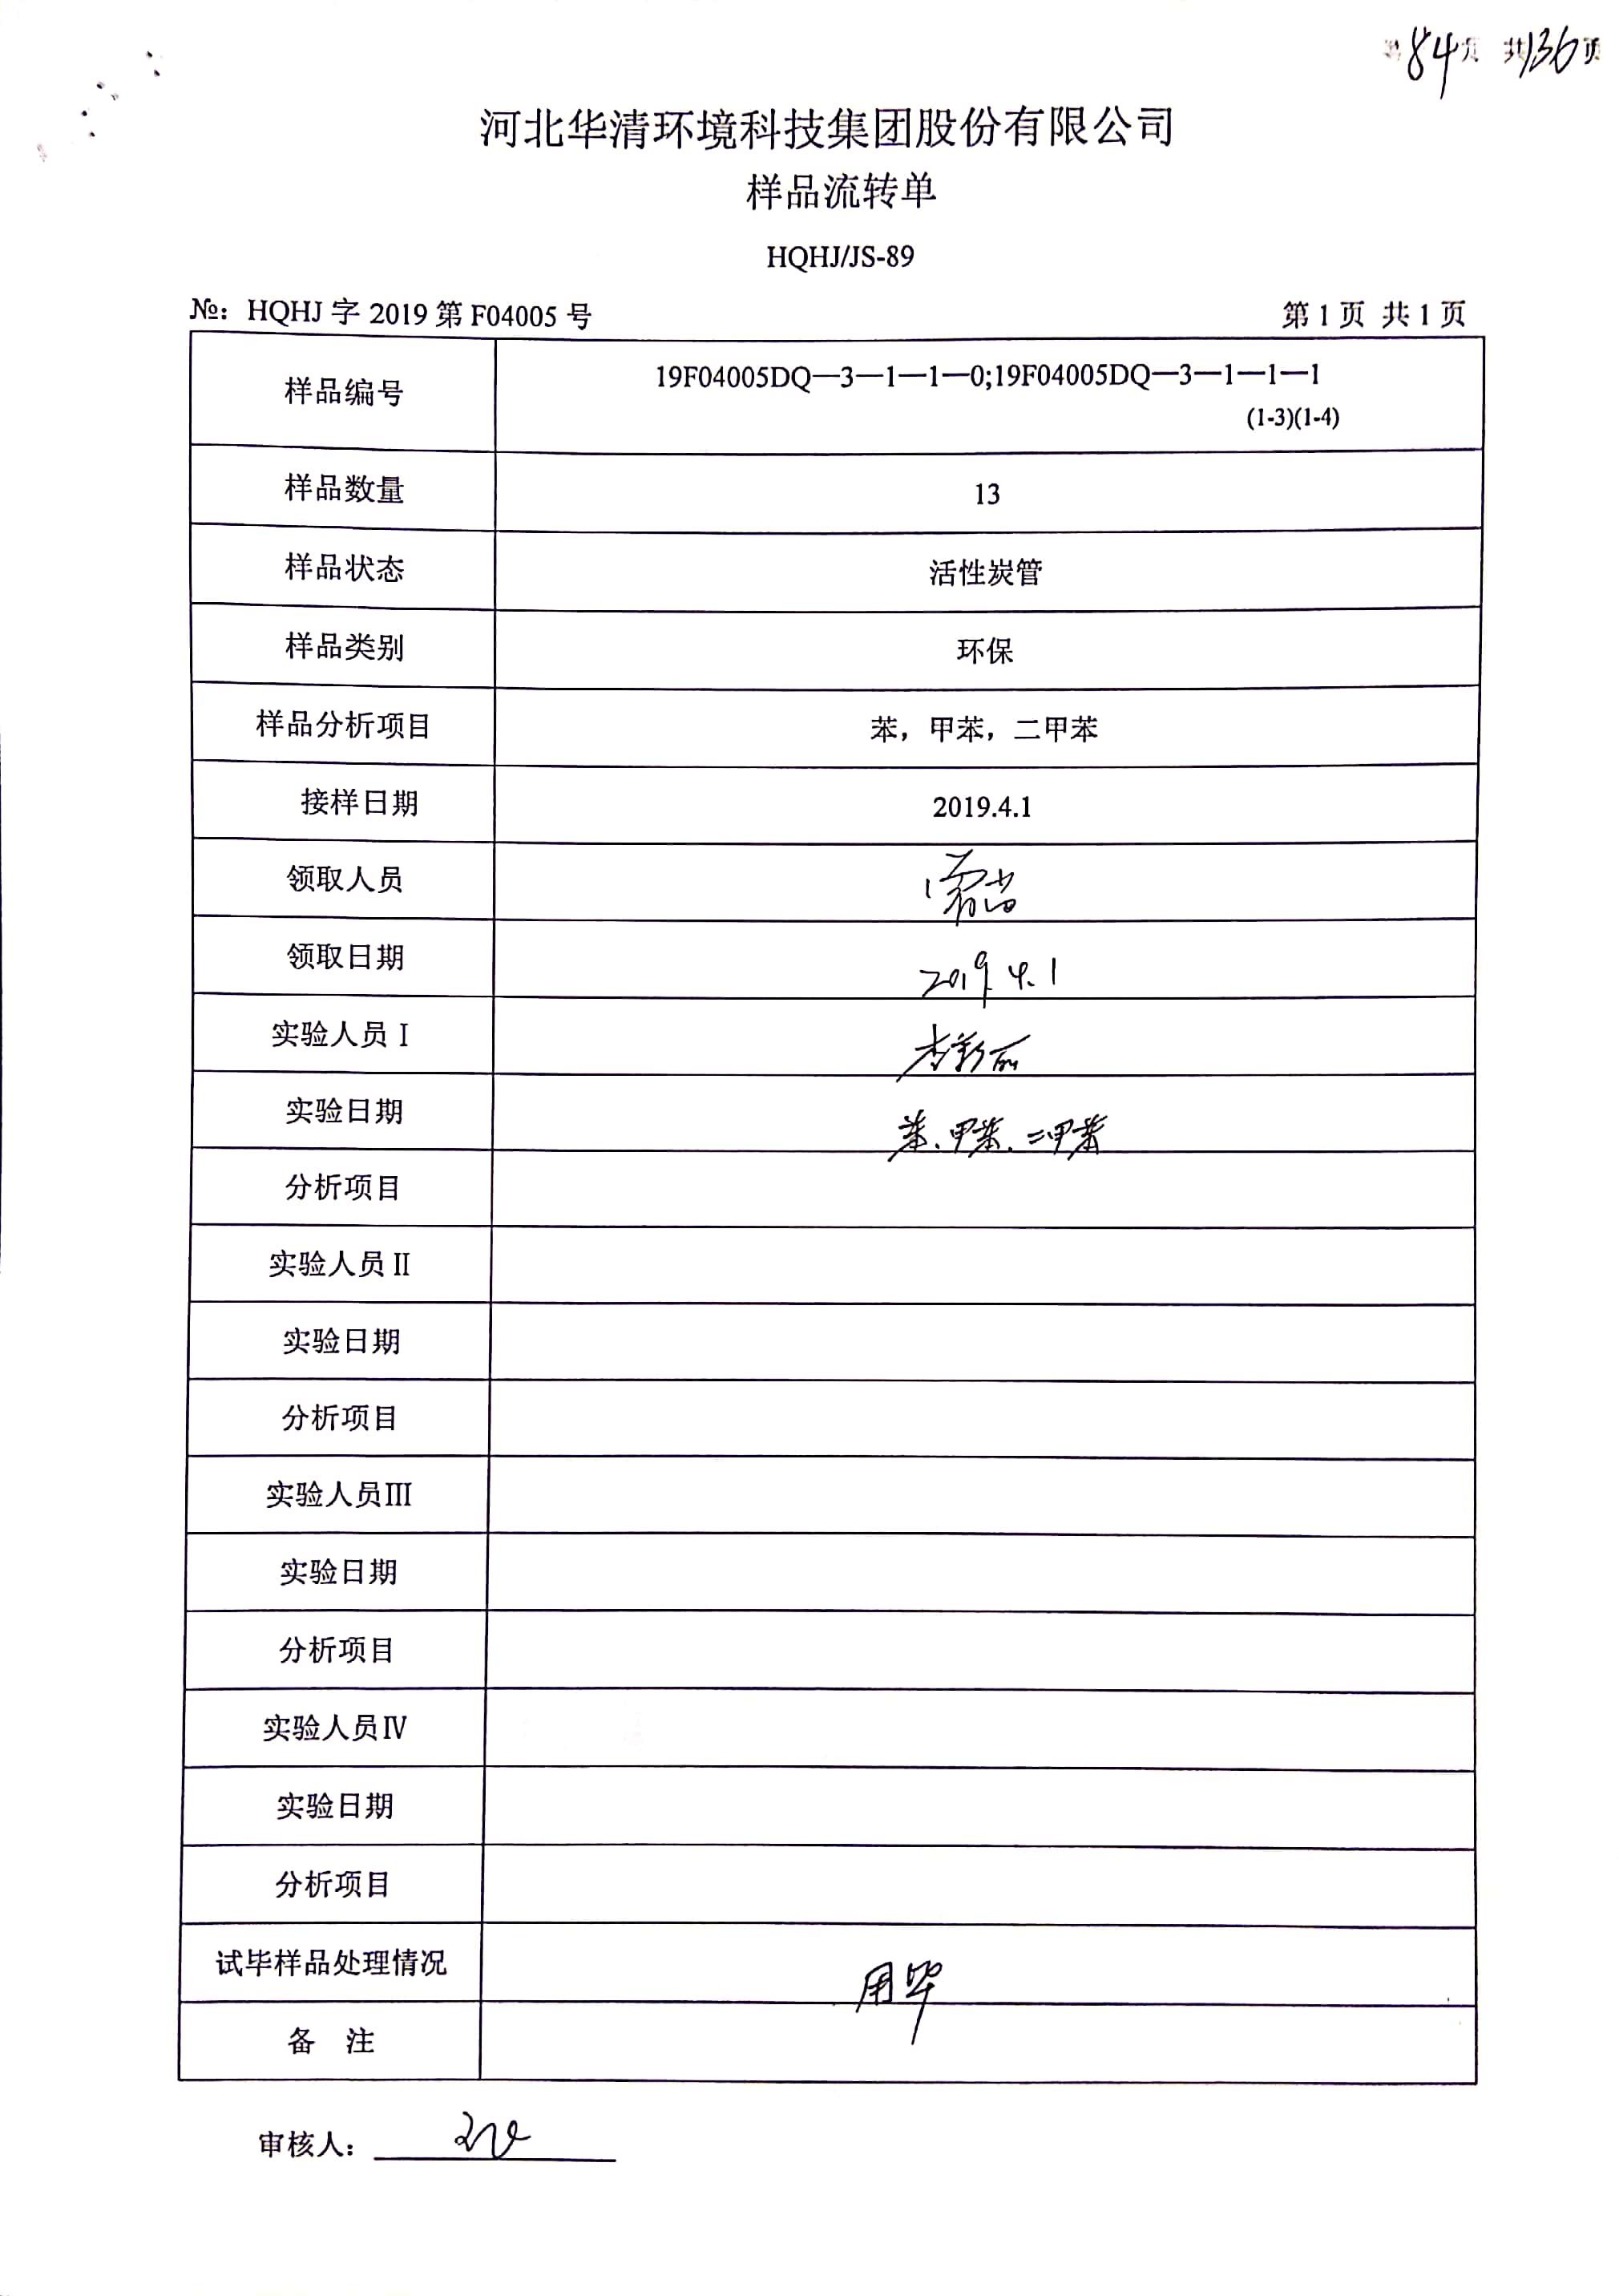 第84页 共136页
河北华清环境科技集团股份有限公司
样品流转单
HQHJ/JS-89
№：HQHJ 字 2019 第 F04005 号 第 1 页 共 1 页
样品编号 19F04005DQ—3—1—1—0;19F04005DQ—3—1—1—1
(1-3)(1-4)
样品数量 13
样品状态 活性炭管
样品类别 环保
样品分析项目 苯，甲苯，二甲苯
接样日期 2019.4.1
领取人员
领取日期 2019.4.1
实验人员 I 李彩丽
实验日期 苯、甲苯、二甲苯
分析项目
实验人员 II
实验日期
分析项目
实验人员III
实验日期
分析项目
实验人员IV
实验日期
分析项目
试毕样品处理情况 用毕
备 注
审核人：